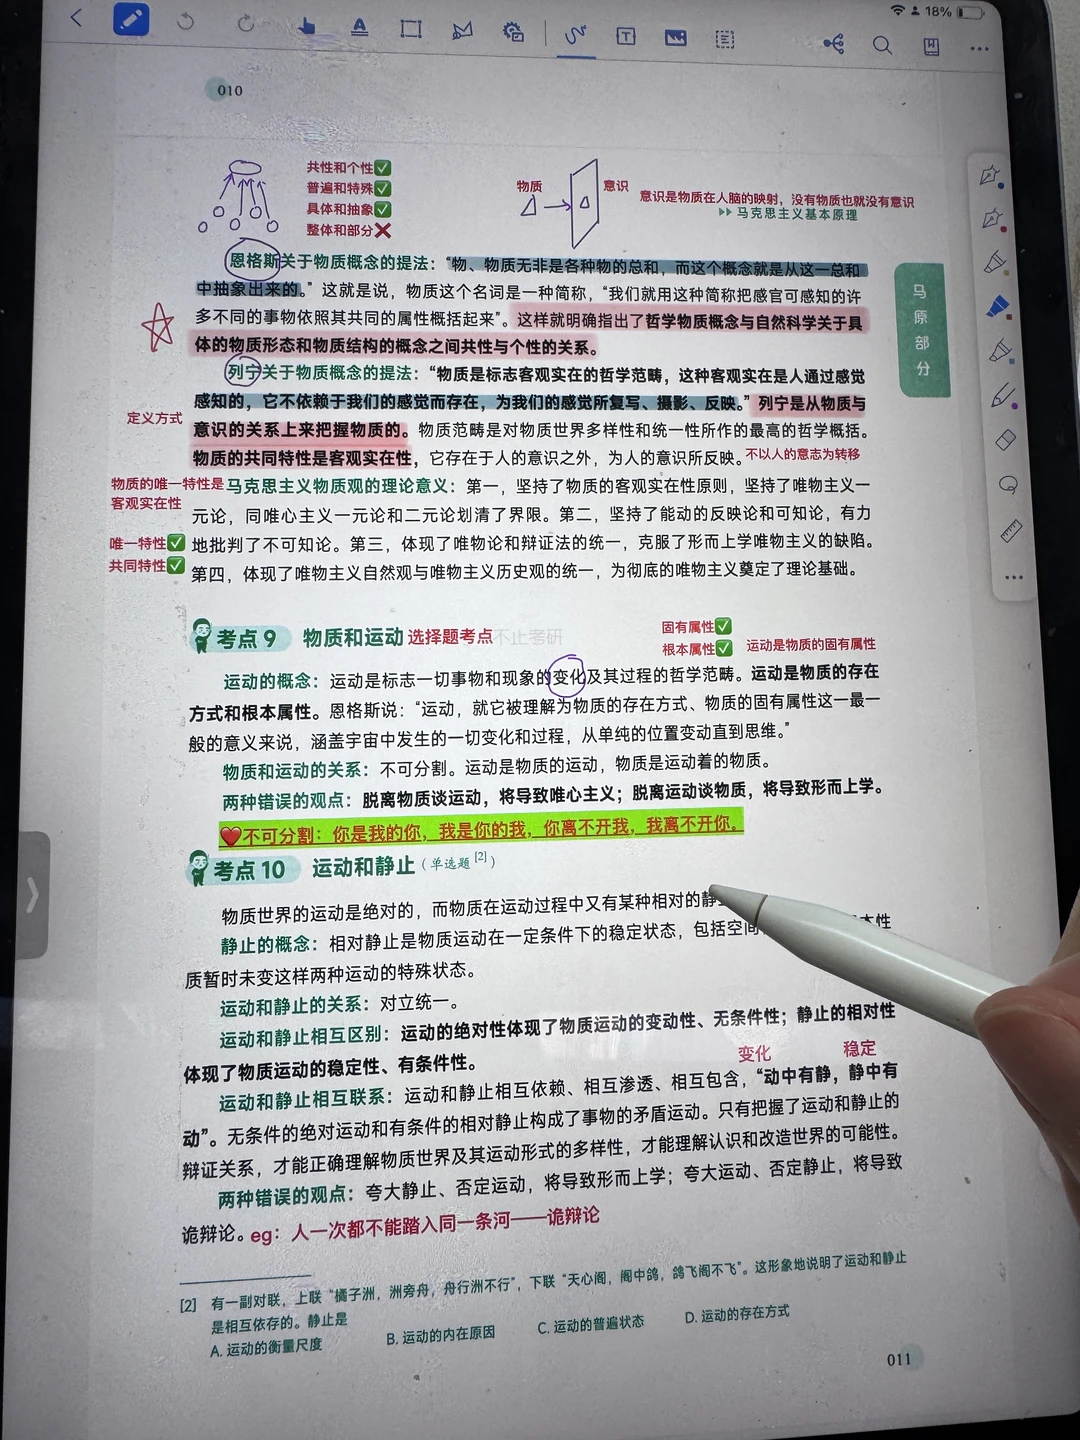 18%
010
共性和个性✅
普遍和特殊✅
具体和抽象✅
整体和部分❌
物质
意识
意识是物质在人脑的映射，没有物质也就没有意识
▶▶ 马克思主义基本原理
恩格斯关于物质概念的提法：“物、物质无非是各种物的总和，而这个概念就是从这一总和
中抽象出来的。”这就是说，物质这个名词是一种简称，“我们就用这种简称把感官可感知的许
多不同的事物依照其共同的属性概括起来”。这样就明确指出了哲学物质概念与自然科学关于具
体的物质形态和物质结构的概念之间共性与个性的关系。
列宁关于物质概念的提法：“物质是标志客观实在的哲学范畴，这种客观实在是人通过感觉
感知的，它不依赖于我们的感觉而存在，为我们的感觉所复写、摄影、反映。”列宁是从物质与
定义方式
意识的关系上来把握物质的。物质范畴是对物质世界多样性和统一性所作的最高的哲学概括。
物质的共同特性是客观实在性，它存在于人的意识之外，为人的意识所反映。不以人的意志为转移
物质的唯一特性是
客观实在性
马克思主义物质观的理论意义：第一，坚持了物质的客观实在性原则，坚持了唯物主义一
元论，同唯心主义一元论和二元论划清了界限。第二，坚持了能动的反映论和可知论，有力
唯一特性✅
地批判了不可知论。第三，体现了唯物论和辩证法的统一，克服了形而上学唯物主义的缺陷。
共同特性✅
第四，体现了唯物主义自然观与唯物主义历史观的统一，为彻底的唯物主义奠定了理论基础。
马原部分
考点 9 物质和运动 选择题考点
不止考研
固有属性✅
根本属性✅ 运动是物质的固有属性
运动的概念：运动是标志一切事物和现象的变化及其过程的哲学范畴。运动是物质的存在
方式和根本属性。恩格斯说：“运动，就它被理解为物质的存在方式、物质的固有属性这一最一
般的意义来说，涵盖宇宙中发生的一切变化和过程，从单纯的位置变动直到思维。”
物质和运动的关系：不可分割。运动是物质的运动，物质是运动着的物质。
两种错误的观点：脱离物质谈运动，将导致唯心主义；脱离运动谈物质，将导致形而上学。
❤️不可分割：你是我的你，我是你的我，你离不开我，我离不开你。
考点 10 运动和静止（单选题[2]）
物质世界的运动是绝对的，而物质在运动过程中又有某种相对的静
静止的概念：相对静止是物质运动在一定条件下的稳定状态，包括空间 本性
质暂时未变这样两种运动的特殊状态。
运动和静止的关系：对立统一。
运动和静止相互区别：运动的绝对性体现了物质运动的变动性、无条件性；静止的相对性
体现了物质运动的稳定性、有条件性。
变化 稳定
运动和静止相互联系：运动和静止相互依赖、相互渗透、相互包含，“动中有静，静中有
动”。无条件的绝对运动和有条件的相对静止构成了事物的矛盾运动。只有把握了运动和静止的
辩证关系，才能正确理解物质世界及其运动形式的多样性，才能理解认识和改造世界的可能性。
两种错误的观点：夸大静止、否定运动，将导致形而上学；夸大运动、否定静止，将导致
诡辩论。eg：人一次都不能踏入同一条河——诡辩论
[2] 有一副对联，上联“橘子洲，洲旁舟，舟行洲不行”，下联“天心阁，阁中鸽，鸽飞阁不飞”。这形象地说明了运动和静止
是相互依存的。静止是
A. 运动的衡量尺度 B. 运动的内在原因 C. 运动的普遍状态 D. 运动的存在方式
011